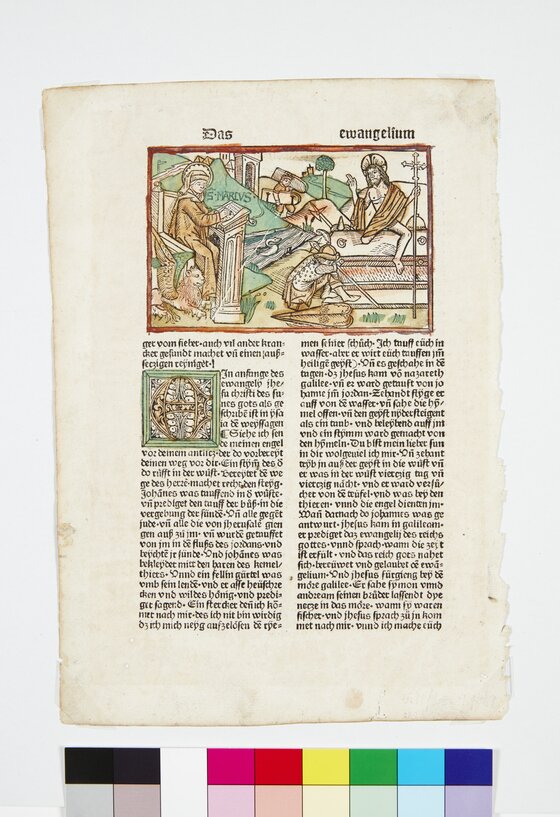 Das ewangelium
S·MARCVS
ger vom fieber·auch vil ander kran-
cker gesundt machet vñ einen auß-
seczigen reyniget·
In anfange des
ewangely jhe-
su christi des su-
nes gots als ge-
schribē ist in ysa
ia dē weyssagen
Siehe ich sen
de meinen engel
vor deinem antlicz·der do vorbereyt
deinen weg vor dir·Ein stym̄ des
do rüfft in der wüst·Bereytet dē we
ge des herrē·machet recht sein steyg·
Johānes was tauffend in d̄ wüste·
vñ prediget den tauff der bůß·in die
vergebung der sünde·Vñ alle geget
jude·vñ alle die von jherusalē gien
gen auß zů im·vñ wurdē getauffet
von jm in dē flusß des jordans·vnd
beychtē jr sünde·Vnd johānes was
bekleydet mit den haren des kemel/
thiers·Vnnd ein fellin gürtel was
vmb sein lendē·vnd er asse heuschre
cken vnd wildes hönig·vnd predi-
get sagend·Ein stercker denn ich kō-
met nach mir·des ich nit bin wirdig
dz ich mich neyg aufzelösen dē rye-
men seiner schůch·Ich tauff eüch in
wasser·aber er wirt eüch tauffen jm̄
heiligē geyst·Vñ es geschahe in dē
tagen·dz jhesus kam vō nazareth
galilee·vñ er ward getauft von jo
hannē jm̄ jordan·Zehandt styge er
auff von dē wasser·vñ sahe die hy-
mel offen·vñ den geyst nydersteigent
als ein taub·vnd beleybend auff jm
vnd ein stym̄ ward gemacht von
den hymeln·Du bist mein lieber sun
in dir wolgeuiel ich mir·Vñ zehant
treyb jn auß der geyst in die wüst vñ
er was in der wüst vierczig tag vñ
vierczig nächt·vnd er ward versů-
chet von dē teüfel·vnd was bey den
thieren·vnnd die engel dienten jm·
Wañ dernach do johannes was ge
antwurt·jhesus kam in galileam·
er prediget daz ewangely des reichs
gottes·vnnd sprach·wann die zeyt
ist erfült·vnd das reich gots nahet
sich·berüwet vnd gelaubet dē ewā-
gelium·Vnd jhesus fürgieng bey dē
möre galilee·Er sahe symon vnnd
andream seinen brůder lassendt dye
necze in das möre·wann sy waren
fischer·vnd jhesus sprach zů jn kom
met nach mir·vnnd ich mache eüch